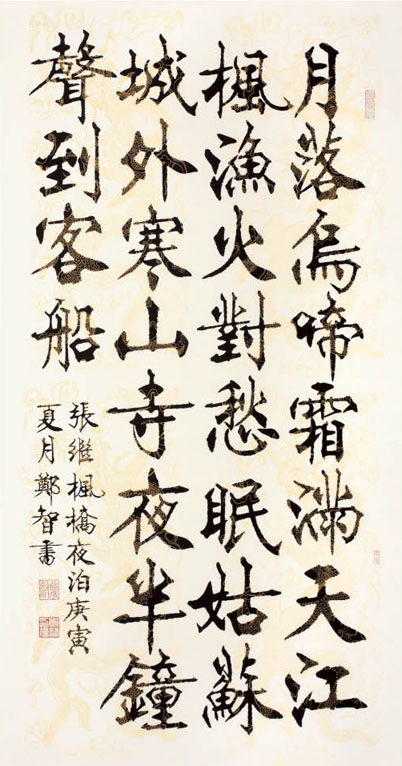 月落烏啼霜滿天江
楓漁火對愁眠姑蘇
城外寒山寺夜半鐘
聲到客船
張繼楓橋夜泊庚寅
夏月鄭智書